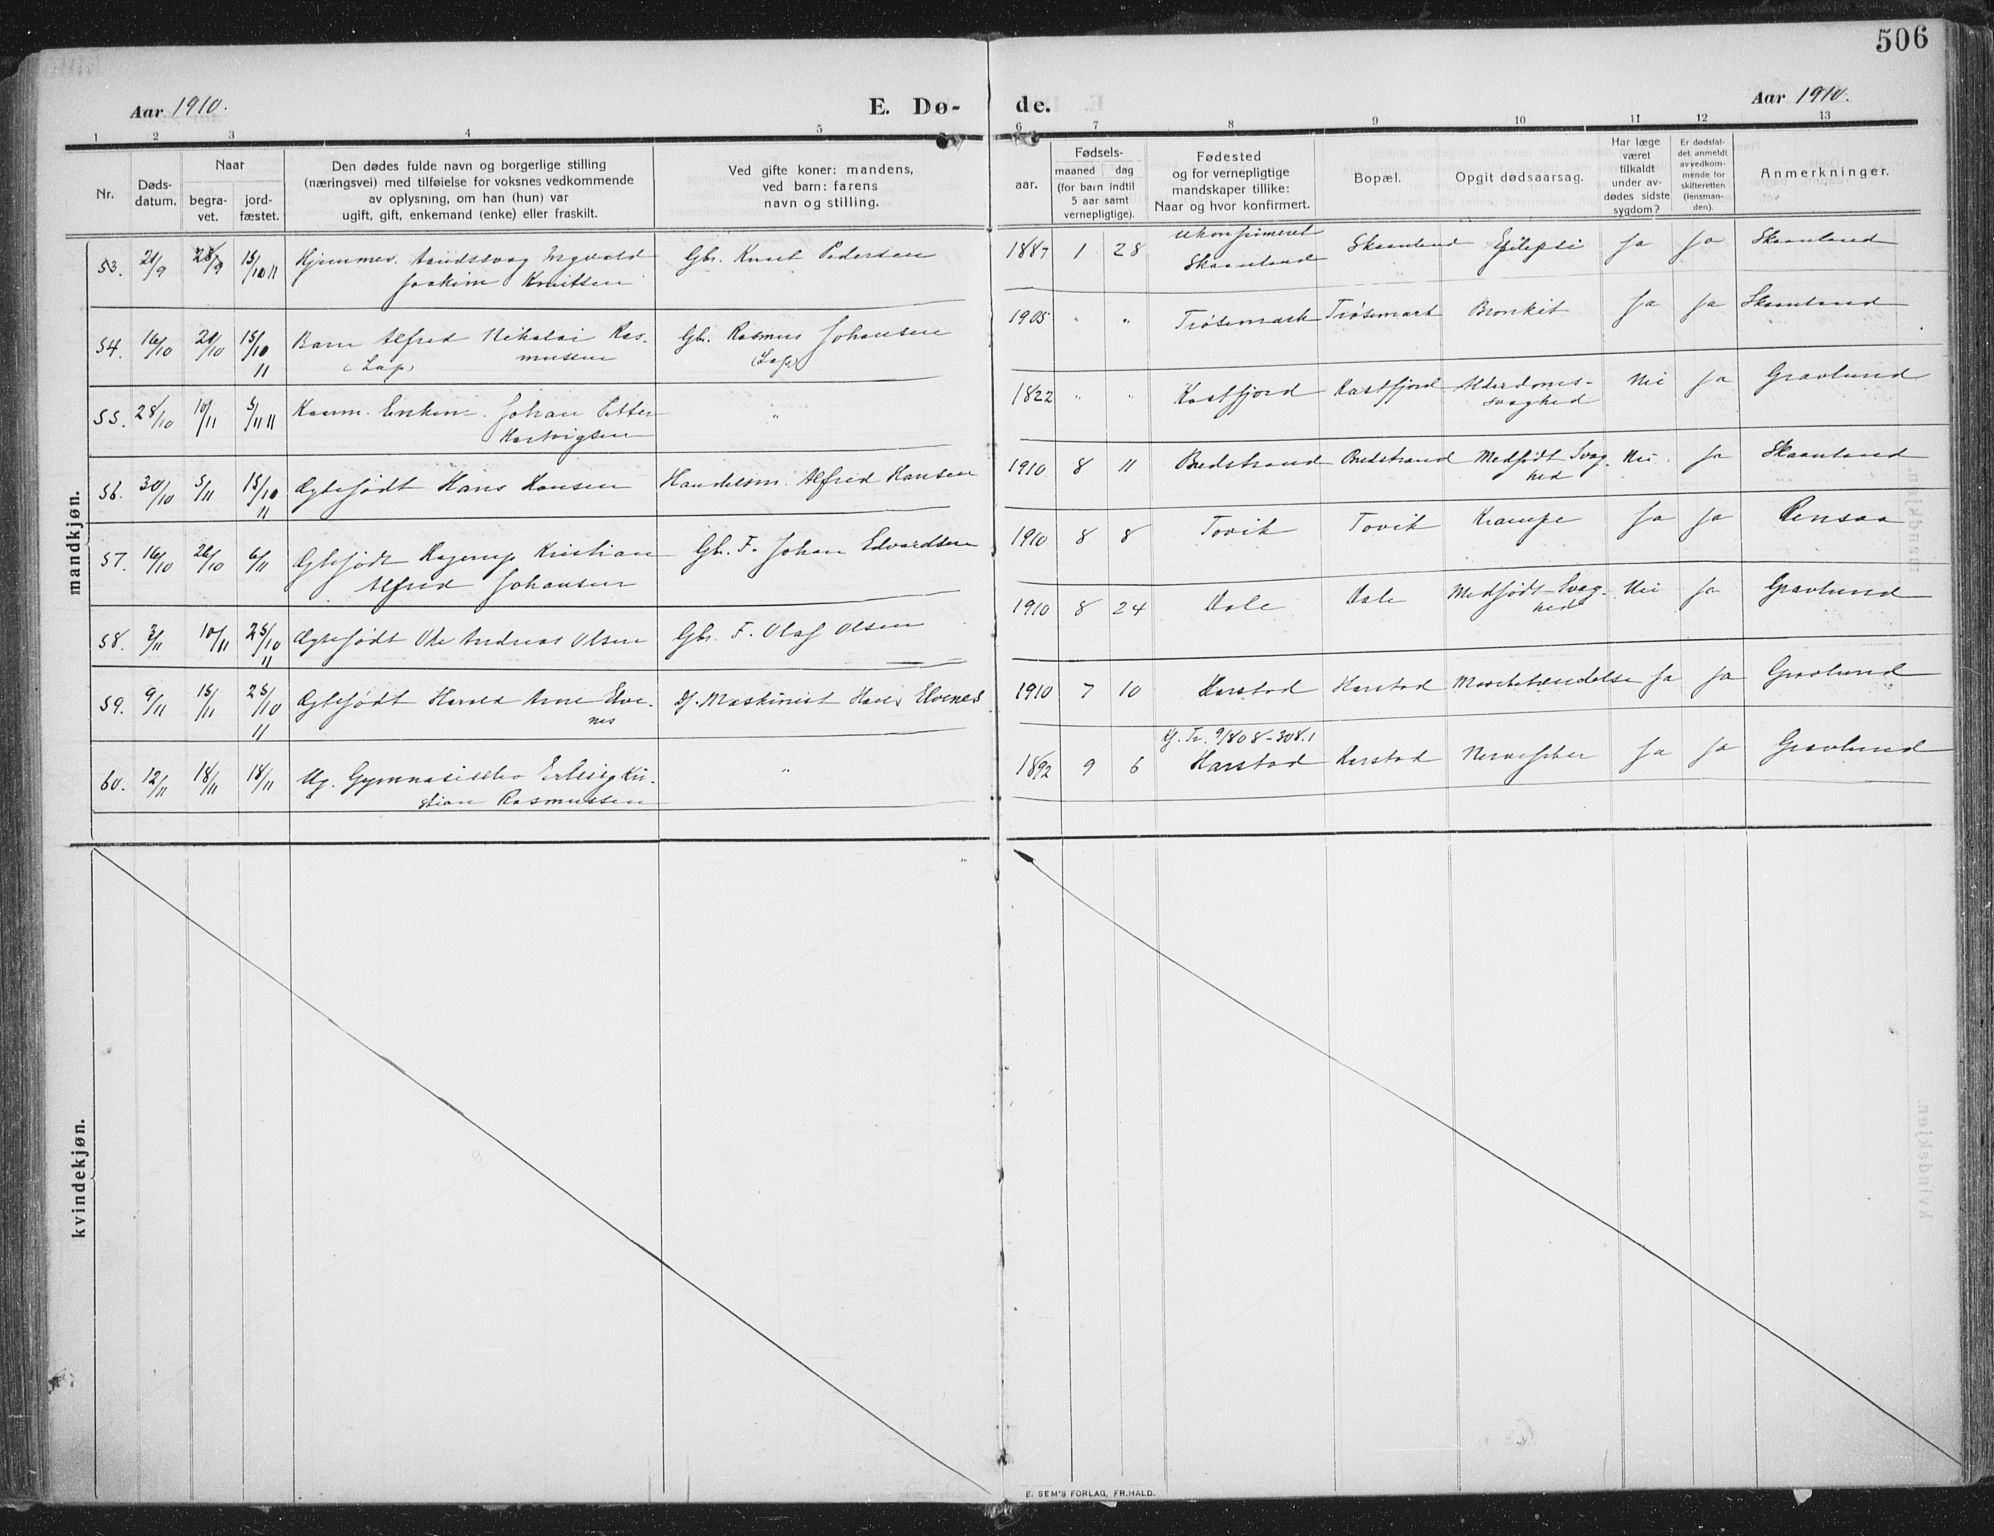 506
Aar 1910.
E. Dø- de.
Aar 1910.
1 2 3 4 5 6 7 8 9 10 11 12 13
Nr.
Døds-
datum.
Naar
begra-
vet.
jord-
fæstet.
Den dødes fulde navn og borgerlige stilling
(næringsvei) med tilføielse for voksnes vedkommende
av oplysning, om han (hun) var
ugift, gift, enkemand (enke) eller fraskilt.
Ved gifte koner: mandens,
ved barn: farens
navn og stilling.
Fødsels-
aar.
maaned dag
(for barn indtil
5 aar samt
vernepligtige).
Fødested
og for vernepligtige
mandskaper tillike:
Naar og hvor konfirmert.
Bopæl.
Opgit dødsaarsag.
Har læge
været
tilkaldt
under av-
dødes sidste
sygdom?
Er dødsfal-
det anmeldt
av vedkom-
mende for
skifteretten
(lensman-
den).
Anmerkninger.
mandkjøn.
53. 21/9 28/9 15/10 11 Hjemmev. Ingvald Gbr. Knut Pedersen 1887 1 28 ukonfirmeret Skaanland Epilepsi Ja Ja Skaanland
Joakim Knutsen Skaanland
54. 16/10 20/10 15/10 11 Barn Alfred Nikolai Ras- Gbr. Rasmus Johansen 1905 " " Trøsemark Trøsemark Bronkit Ja Ja Skaanland
(Lap) mussen (Lap)
55. 28/10 10/11 5/11 11 Enkem. Johan Petter " 1822 " " Kastfjord Kastfjord Alderdoms- Nei Ja Gravlund
Hartvigsen svaghed
56. 30/10 5/11 15/10 11 Ægtefødt Hans Hansen Handelsm. Alfred Hansen 1910 8 11 Bredstrand Bredstrand Medfødt Svag- Nei Ja Skaanland
hed
57. 16/10 26/10 6/11 Ægtefødt Hagerup Kristian Gbr. F. Johan Edvardsen 1910 8 8 Tovik Tovik Krampe Ja Ja Rensaa
Alfred Johansen
58. 3/11 10/11 25/10 11 Ægtefødt Ole Andreas Olsen Gbr. F. Olaf Olsen 1910 8 24 Dale Dale Medfødt Svag- Nei Ja Gravlund
hed
59. 9/11 15/11 25/10 11 Ægtefødt Harald Arne Elve- Maskinist Hans Elvenes 1910 7 10 Harstad Harstad Ja Ja Gravlund
nes
60. 12/11 18/11 18/11 Ug. Gymnasieelev Erling Kri- " 1892 9 6 Harstad Harstad Nervefeber Ja Ja Gravlund
stian Rasmussen
kvindekjøn.
E. SEM'S FORLAG, FR.HALD.